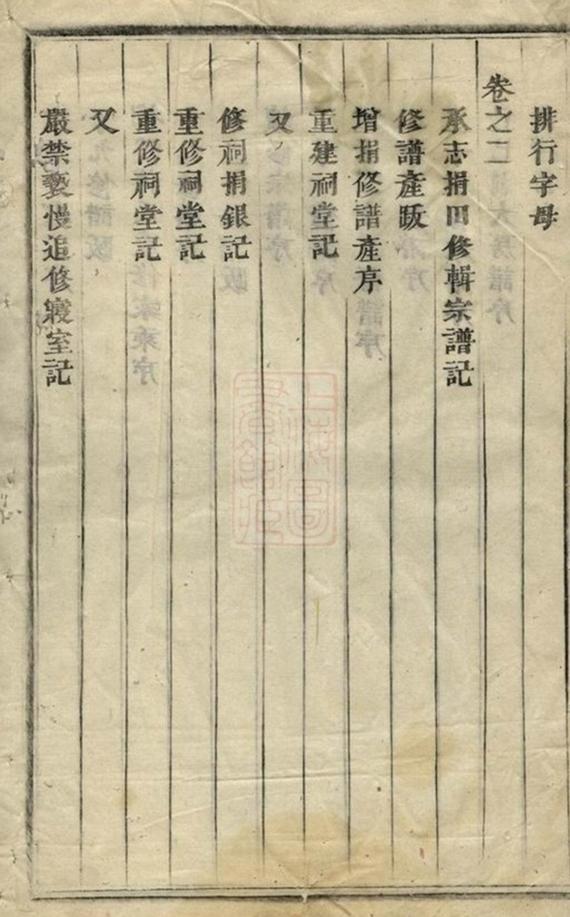 排行字母
卷之二
承志捐田修輯宗譜記
修譜產畈
增捐修譜產序
重建祠堂記
又
修祠捐銀記
重修祠堂記
重修祠堂記
又
嚴禁褻慢追修寢室記